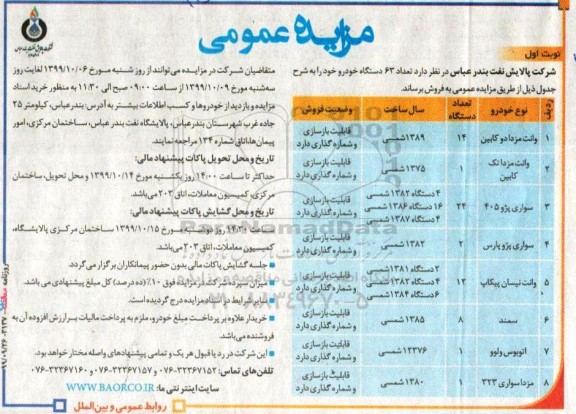 مزایده عمومی
نوبت اول
شرکت پالایش نفت بندر عباس در نظر دارد تعداد ۶۳ دستگاه خودرو خود را به شرح
جدول ذیل از طریق مزایده عمومی به فروش برساند.
ردیف نوع خودرو تعداد دستگاه سال ساخت وضعیت فروش
۱ وانت مزدا دو کابین ۱۴ ۱۳۸۹ شمسی قابلیت بازسازی و شماره گذاری دارد
۲ وانت مزدا تک کابین ۱ ۱۳۷۵ شمسی قابلیت بازسازی و شماره گذاری دارد
۳ سواری پژو ۴۰۵ ۲۴ ۴ دستگاه ۱۳۸۲ شمسی ۱۶ دستگاه ۱۳۸۶ شمسی ۴ دستگاه ۱۳۸۷ شمسی قابلیت بازسازی و شماره گذاری دارد
۴ سواری پژو پارس ۲ ۱۳۸۲ شمسی قابلیت بازسازی و شماره گذاری دارد
۵ وانت نیسان پیکاپ ۱۲ ۲ دستگاه ۱۳۸۱ شمسی ۴ دستگاه ۱۳۸۲ شمسی ۶ دستگاه ۱۳۸۴ شمسی قابلیت بازسازی و شماره گذاری دارد
۶ سمند ۸ ۱۳۸۵ شمسی قابلیت بازسازی و شماره گذاری دارد
۷ اتوبوس ولوو ۱ ۱۲۳۷۶ شمسی قابلیت بازسازی و شماره گذاری دارد
۸ مزدا سواری ۳۲۳ ۱ ۱۳۸۰ شمسی قابلیت بازسازی و شماره گذاری دارد
متقاضیان شرکت در مزایده می توانند از روز شنبه مورخ ۱۳۹۹/۱۰/۰۶ لغایت روز
سه شنبه مورخ ۱۳۹۹/۱۰/۰۹ از ساعت ۰۹:۰۰ صبح الی ۱۱:۳۰ به منظور خرید اسناد
مزایده و بازدید از خودروها و کسب اطلاعات بیشتر به آدرس بندرعباس، کیلومتر ۲۵
جاده غرب شهرستان بندرعباس، پالایشگاه نفت بندر عباس، ساختمان مرکزی، امور
پیمان ها، اتاق شماره ۱۳۴ مراجعه نمایند.
تاریخ و محل تحویل پاکات پیشنهاد مالی:
حداکثر تا ساعت ۱۴:۰۰ روز یکشنبه مورخ ۱۳۹۹/۱۰/۱۴ و محل تحویل، ساختمان
مرکزی، کمیسیون معاملات، اتاق ۲۰۳ می باشد.
تاریخ و محل گشایش پاکات پیشنهاد مالی:
روز دوشنبه مورخ ۱۳۹۹/۱۰/۱۵ ساختمان مرکزی پالایشگاه،
کمیسیون معاملات، اتاق ۲۰۳ می باشد.
• جلسه گشایش پاکات مالی بدون حضور پیمانکاران برگزار می گردد.
• میزان سپرده شرکت در مزایده فوق ۱۰٪ (ده درصد) کل مبلغ پیشنهادی می باشد.
• سایر شرایط در اسناد مزایده درج گردیده است.
• خریدار علاوه بر پرداخت مبلغ خودرو، ملزم به پرداخت مالیات بر ارزش افزوده آن به
فروشنده می باشد.
• این شرکت در رد یا قبول هر یک و تمامی پیشنهادهای واصله مختار خواهد بود.
تلفن های تماس: ۰۷۶-۳۲۳۶۷۱۵۲ و ۰۷۶-۳۲۳۶۷۱۵۷ و ۰۷۶-۳۲۳۶۷۱۶۰
سایت اینترنتی ما: WWW.BAORCO.IR
روابط عمومی و بین الملل
ParsNamadData